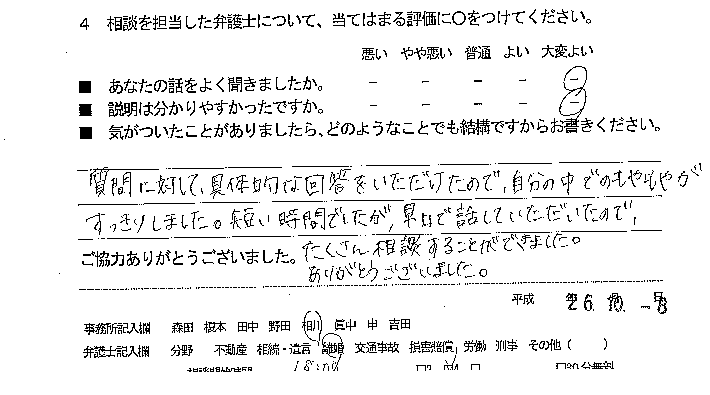 4 相談を担当した弁護士について、当てはまる評価に○をつけてください。
悪い やや悪い 普通 よい 大変よい
■ あなたの話をよく聞きましたか。 － － － － －
■ 説明は分かりやすかったですか。 － － － － －
■ 気がついたことがありましたら、どのようなことでも結構ですからお書きください。
質問に対して、具体的な回答をいただけたので、自分の中でのもやもやが
すっきりしました。短い時間でしたが、早口で話していただいたので、
たくさん相談することができました。
ご協力ありがとうございました。
ありがとうございました。
平成 26.10.-8
事務所記入欄 森田 榎本 田中 野田 相川 眞中 申 吉田
弁護士記入欄 分野 不動産 相続・遺言 離婚 交通事故 損害賠償 労働 刑事 その他（ ）
18:00